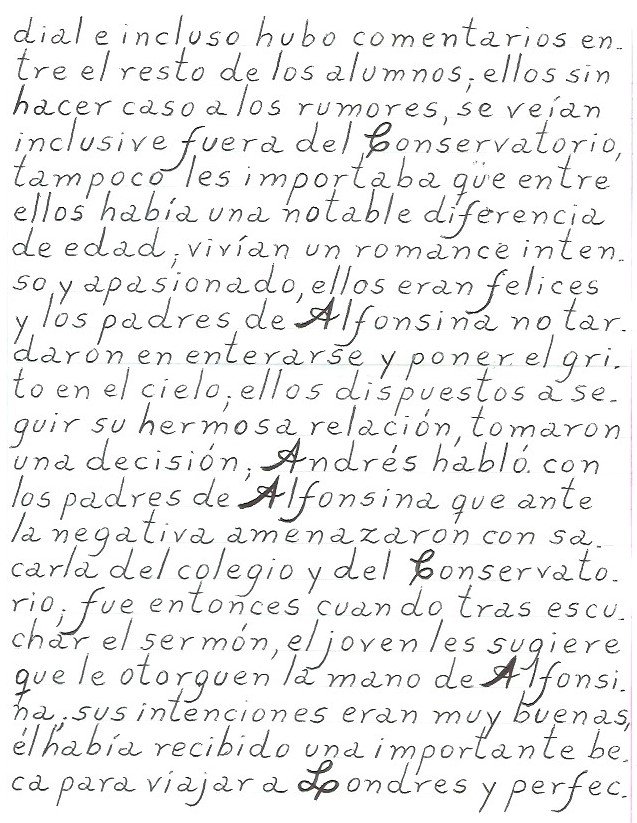 dial e incluso hubo comentarios en-
tre el resto de los alumnos; ellos sin
hacer caso a los rumores, se veían
inclusive fuera del Conservatorio,
tampoco les importaba que entre
ellos había una notable diferencia
de edad; vivían un romance inten-
so y apasionado, ellos eran felices
y los padres de Alfonsina no tar-
daron en enterarse y poner el gri-
to en el cielo; ellos dispuestos a se-
guir su hermosa relación, tomaron
una decisión; Andrés habló con
los padres de Alfonsina que ante
la negativa amenazaron con sa-
carla del colegio y del Conservato-
rio; fue entonces cuando tras escu-
char el sermón, el joven les sugiere
que le otorguen la mano de Alfonsi-
na; sus intenciones eran muy buenas,
él había recibido una importante be-
ca para viajar a Londres y perfec-